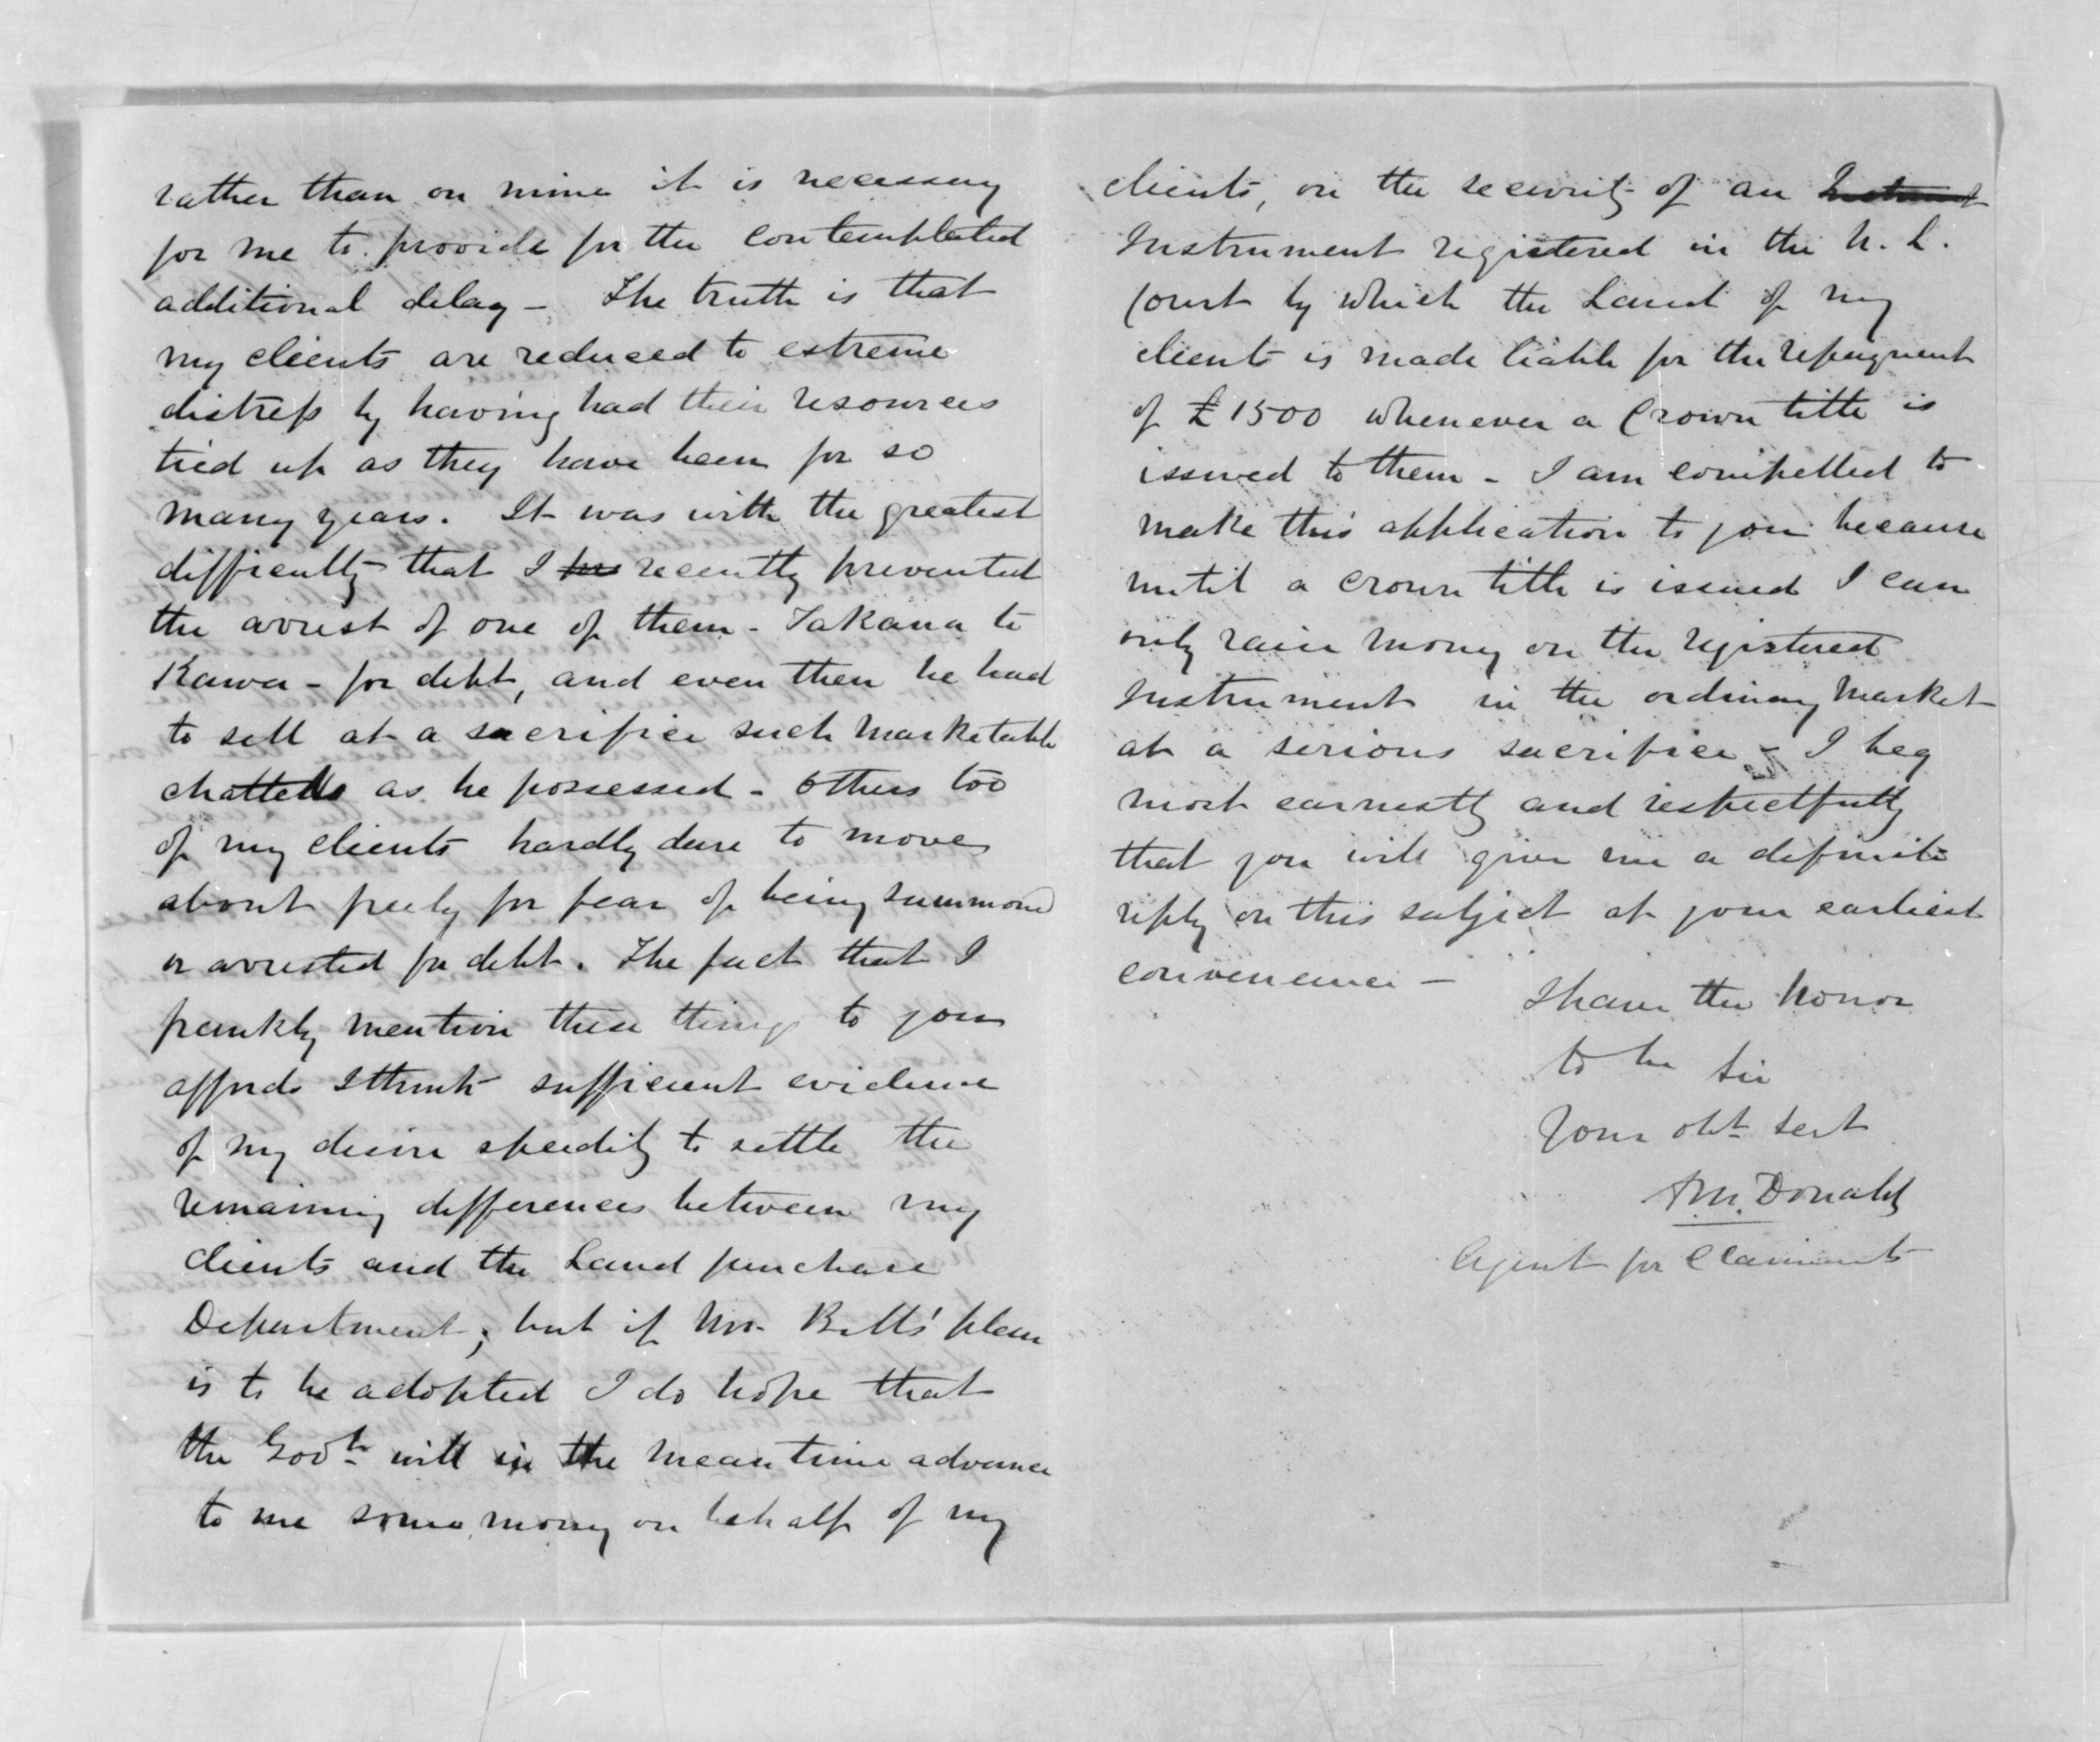 rather than on mine it is necessary
for me to provide for the contemplated
additional delay – The truth is that
my clients are reduced to extreme
distress by having had their resources
tied up as they have been for so
many years. It was with the greatest
difficulty that I recently prevented
the arrest of one of them – Takana te
Kawa – for debt, and even then he had
to sell at a sacrifice such marketable
chattells as he possessed – others too
of my clients hardly dare to move
about freely for fear of being summoned
or arrested for debt. The fact that I
frankly mention these things to you
affords I think sufficient evidence
of my desire speedily to settle the
remaining differences between my
clients and the Land purchase
Department; but if Mr. Butts' plan
is to be adopted I do hope that
the Govt. will in the meantime advance
to me some money on behalf of my
clients, on the security of an Instrument
Instrument registered in the N. L.
Court by which the Land of my
clients is made liable for the repayment
of £1500 whenever a Crown title is
issued to them – I am compelled to
make this application to you because
until a crown title is issued I can
only raise money on the registered
Instrument in the ordinary market
at a serious sacrifice – I beg
most earnestly and respectfully
that you will give me a definite
reply on this subject at your earliest
convenience –
I have the honor
to be Sir
Your obt. Servt
A McDonald
Agent for Claimants